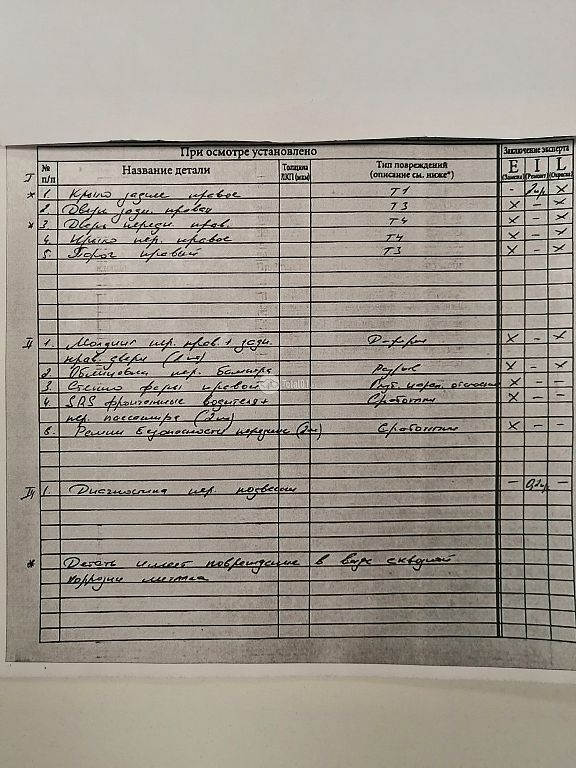 При осмотре установлено Заключение эксперта
№ п/п Название детали Толщина ЛКП (мкм) Тип повреждений (описание см. ниже*) E (Замена) I (Ремонт) L (Окраска)
I
* 1. Крыло заднее правое Т1 - X
2. Дверь задн. правая Т3 X - X
* 3. Дверь передн. прав. Т4 X - X
4. Крыло пер. правое Т4 X - X
5. Порог правый Т3 X - X
II 1. Молдинг пер. прав. + задн. Д-форм X - X
прав. двери (2 шт)
2. Облицовка пер. бампера Разрыв X - X
3. Стекло фары правой X - -
4. SRS фронтальные водителя + Сработали X - -
пер. пассажира (2 шт)
Ремни безопасности передние (2 шт) Сработали X - -
1. Диагностика пер. подвески - -
* Деталь имеет повреждение в виде сквозной
коррозии металла
Total01